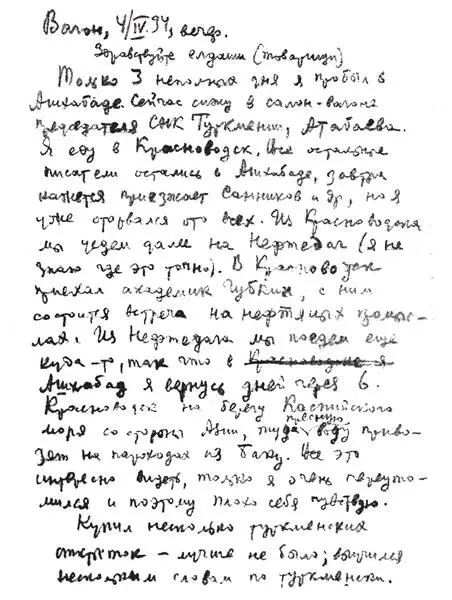 Вагон, 4/IV.34, вечер.
Здравствуйте елдаши (товарищи)
Только 3 неполных дня я пробыл в
Ашхабаде. Сейчас сижу в салон-вагоне
председателя СНК Туркмении, Атабаева.
Я еду в Красноводск. Все остальные
писатели остались в Ашхабаде, завтра
кажется приезжает Санников и др, но я
уже оторвался ото всех. Из Красноводска
мы уедем далее на Нефтедаг (я не
знаю где это точно). В Красноводск
приехал академик Губкин, с ним
состоится встреча на нефтяных промыс-
лах. Из Нефтедага мы поедем еще
куда-то, так что в Красноводске я
Ашхабад я вернусь дней через 6.
Красноводск на берегу Каспийского
моря со стороны Азии, туда пресную воду приво-
зят на пароходах из Баку. Все это
интересно видеть, только я очень переуто-
мился и поэтому плохо себя чувствую.
Купил несколько туркменских
открыток – лучше не было; выучился
нескольким словам по туркменски.